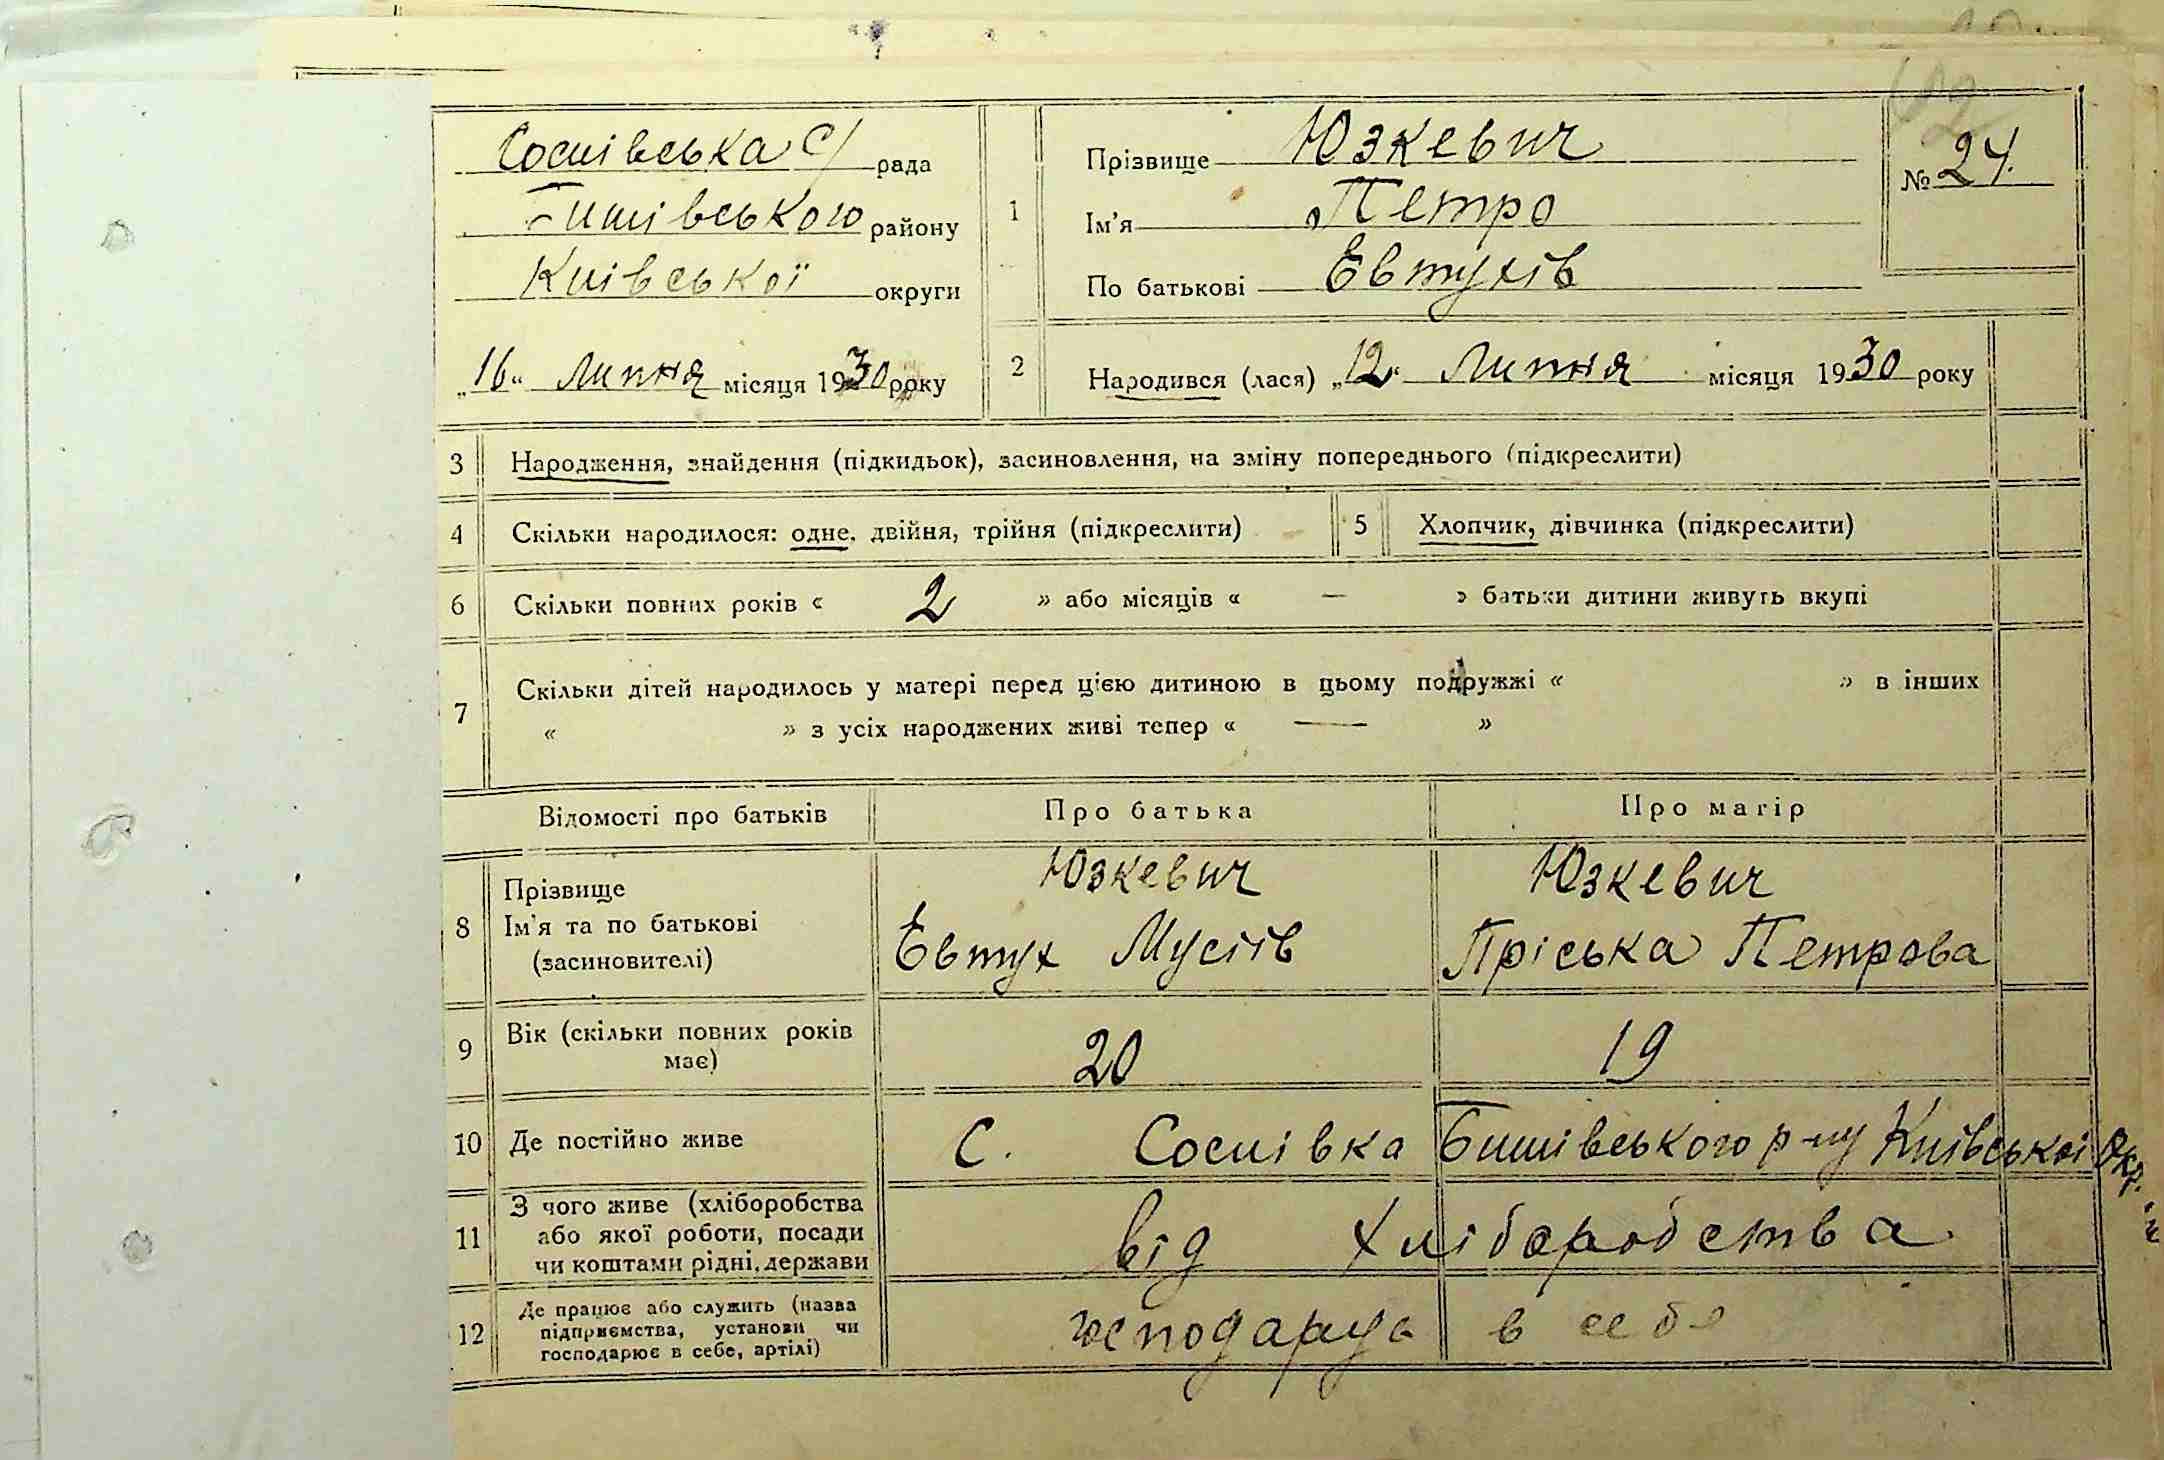 102
Соснівська С/ рада
Бишівського району
Київської округи
„16“ Липня місяця 1930 року
1
Прізвище Юзкевич
Ім'я Петро
По батькові Евтухів
№ 24.
2 Народився (лася) „12“ Липня місяця 1930 року
3 Народження, знайдення (підкидьок), засиновлення, на зміну попереднього (підкреслити)
4 Скільки народилося: одне, двійня, трійня (підкреслити) 5 Хлопчик, дівчинка (підкреслити)
6 Скільки повних років « 2 » або місяців « — » батьки дитини живуть вкупі
7 Скільки дітей народилось у матері перед цією дитиною в цьому подружжі « » в інших
« » з усіх народжених живі тепер « — »
Відомості про батьків Про батька Про матір
8 Прізвище
Ім'я та по батькові
(засиновителі)
Юзкевич
Евтух Мусіїв
Юзкевич
Пріська Петрова
9 Вік (скільки повних років
має)
20 19
10 Де постійно живе С. Соснівка Бишівського р-ну Київської Окр.
11 З чого живе (хліборобства
або якої роботи, посади
чи коштами рідні, держави
від хліборобства
12 Де працює або служить (назва
підприємства, установи чи
господарює в себе, артілі)
господарує в себе